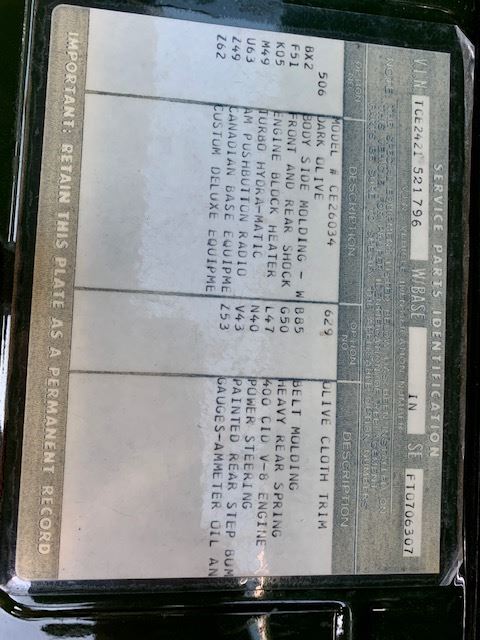 SERVICE PARTS IDENTIFICATION
VIN TCE2421 521796 W/BASE IN SE FT0706307
OPTION NO DESCRIPTION OPTION NO DESCRIPTION
MODEL # CE26034
506 DARK OLIVE 629 OLIVE CLOTH TRIM
BX2 BODY SIDE MOLDING - W B85 BELT MOLDING
F51 FRONT AND REAR SHOCK G50 HEAVY REAR SPRING
K05 ENGINE BLOCK HEATER L47 400 CID V-8 ENGINE
M49 TURBO HYDRA-MATIC N40 POWER STEERING
U63 AM PUSHBUTTON RADIO V43 PAINTED REAR STEP BUM
Z49 CANADIAN BASE EQUIPME Z53 GAUGES-AMMETER OIL AN
Z62 CUSTOM DELUXE EQUIPME
IMPORTANT: RETAIN THIS PLATE AS A PERMANENT RECORD